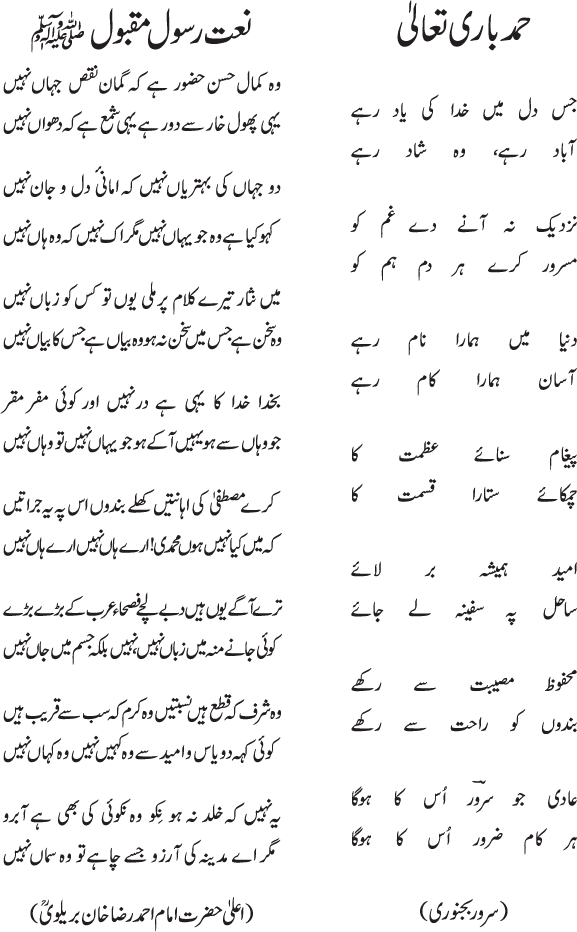 حمد باری تعالیٰ
جس دل میں خدا کی یاد رہے
آباد رہے، وہ شاد رہے
نزدیک نہ آنے دے غم کو
مسرور کرے ہر دم ہم کو
دنیا میں ہمارا نام رہے
آسان ہمارا کام رہے
پیغام سنائے عظمت کا
چمکائے ستارا قسمت کا
امید ہمیشہ بر لائے
ساحل پہ سفینہ لے جائے
محفوظ مصیبت سے رکھے
بندوں کو راحت سے رکھے
عادی جو سرورؔ اُس کا ہوگا
ہر کام ضرور اُس کا ہوگا
(سرور بجنوری)
نعت رسول مقبول ﷺ
وہ کمال حسن حضور ہے کہ گمان نقص جہاں نہیں
یہی پھول خار سے دور ہے یہی شمع ہے کہ دھواں نہیں
دو جہاں کی بہتریاں نہیں کہ امانیٔ دل و جان نہیں
کہو کیا ہے وہ جو یہاں نہیں مگر اک نہیں کہ وہ ہاں نہیں
میں نثار تیرے کلام پر ملی یوں تو کس کو زباں نہیں
وہ سخن ہے جس میں سخن نہ ہو وہ بیاں ہے جس کا بیاں نہیں
بخدا خدا کا یہی ہے در نہیں اور کوئی مفر مقر
جو وہاں سے ہو یہیں آ کے ہو جو یہاں نہیں تو وہاں نہیں
کرے مصطفیٰ کی اہانتیں کھلے بندوں اس پہ یہ جراتیں
کہ میں کیا نہیں ہوں محمدی! ارے ہاں نہیں ارے ہاں نہیں
ترے آگے یوں ہیں دبے لچے فصحاء عرب کے بڑے بڑے
کوئی جانے منہ میں زباں نہیں، نہیں بلکہ جسم میں جاں نہیں
وہ شرف کہ قطع ہیں نسبتیں وہ کرم کہ سب سے قریب ہیں
کوئی کہہ دو یاس و امید سے وہ کہیں نہیں وہ کہاں نہیں
یہ نہیں کہ خلد نہ ہو نِکو وہ نکوئی کی بھی ہے آبرو
مگر اے مدینہ کی آرزو جسے چاہے تو وہ سماں نہیں
(اعلیٰ حضرت امام احمد رضا خان بریلویؒ)